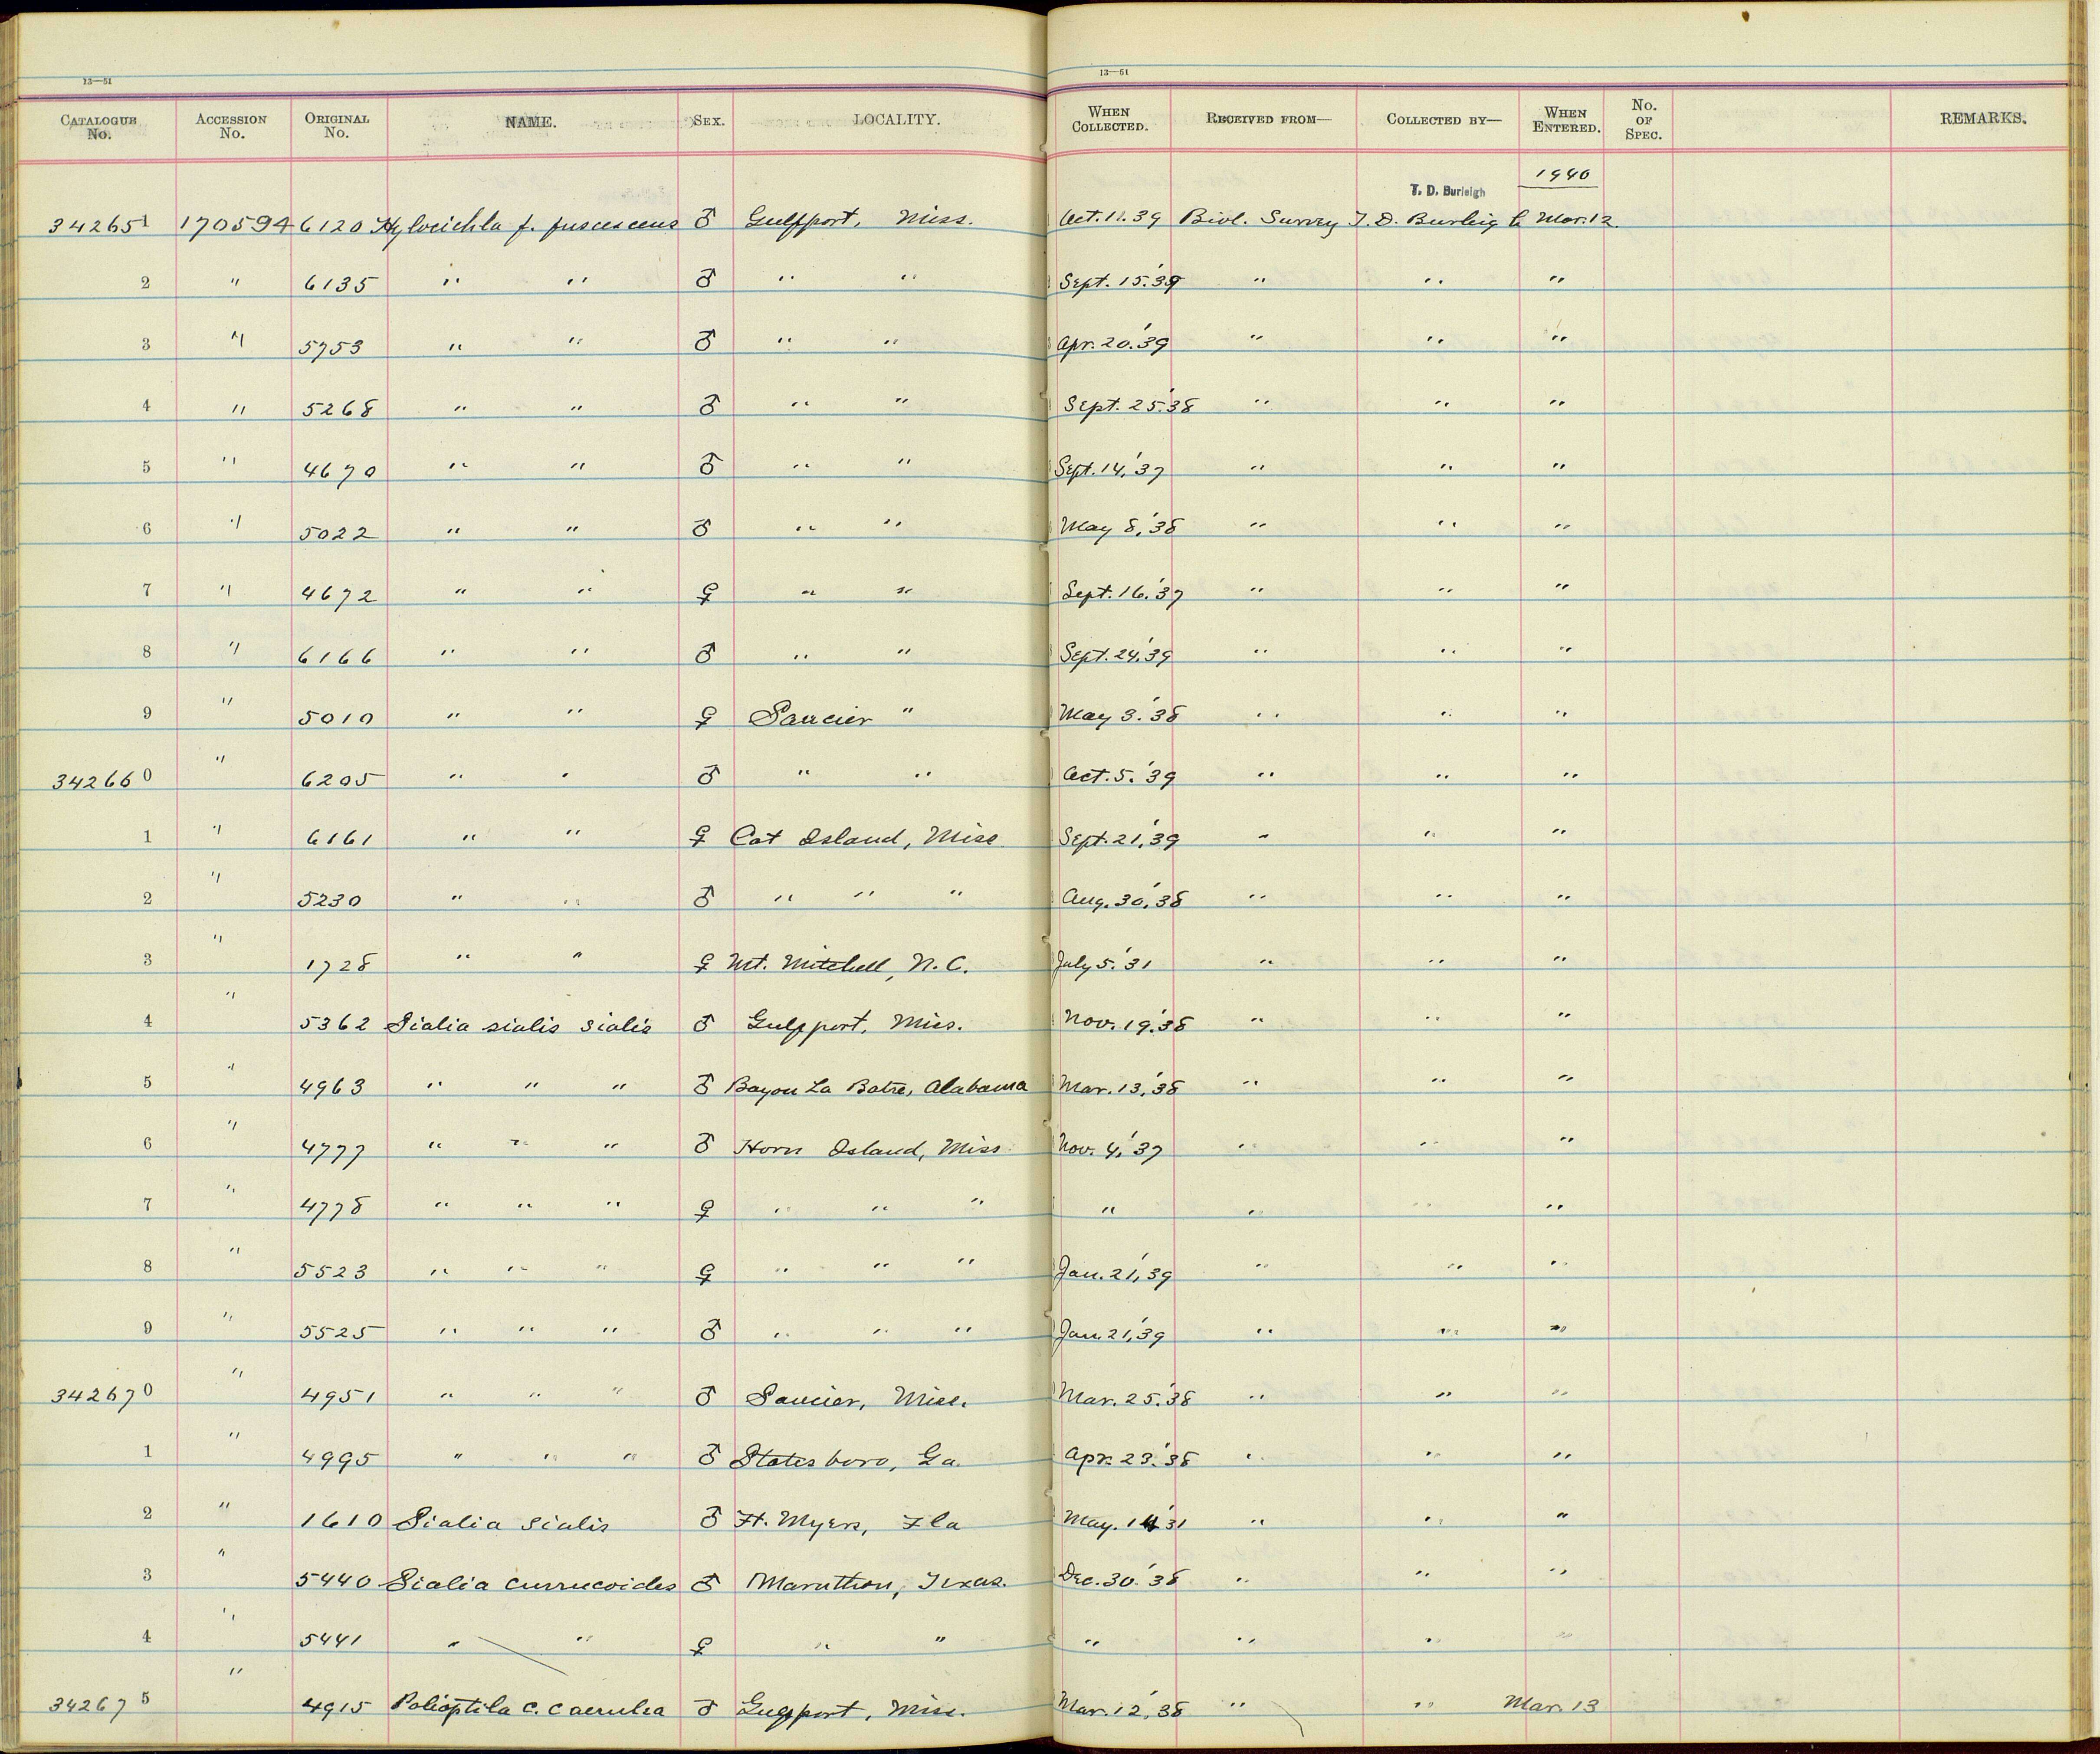 13—51
13—51
CATALOGUE No. ACCESSION No. ORIGINAL No. NAME. SEX. LOCALITY. WHEN COLLECTED. RECEIVED FROM— COLLECTED BY— WHEN ENTERED. No. OF SPEC. REMARKS.
T. D. Burleigh 1940
342651 170594 6120 Hylocichla f. fuscescens ♂ Gulfport, Miss. Oct. 11. 39 Biol. Survey T. D. Burleigh Mar. 12
2 " 6135 " " ♂ " " Sept. 15.'39 " " "
3 " 5753 " " ♂ " " Apr. 20.'39 " " "
4 " 5268 " " ♂ " " Sept. 25.'38 " " "
5 " 4670 " " ♂ " " Sept. 14,'37 " " "
6 " 5022 " " ♂ " " May 8,'38 " " "
7 " 4672 " " ♀ " " Sept. 16.'37 " " "
8 " 6166 " " ♂ " " Sept. 24,'39 " " "
9 " 5010 " " ♀ Saucier " May 3.'38 " " "
342660 " 6205 " " ♂ " " Oct. 5.'39 " " "
1 " 6161 " " ♀ Cat Island, Miss Sept. 21,'39 " " "
2 " 5230 " " ♂ " " " Aug. 30,'38 " " "
3 " 1728 " " ♀ Mt. Mitchell, N.C. July 5.'31 " " "
4 " 5362 Sialia sialis sialis ♂ Gulfport, Miss. Nov. 19.'38 " " "
5 " 4963 " " " ♂ Bayou La Batre, Alabama Mar. 13,'38 " " "
6 " 4777 " " " ♂ Horn Island, Miss. Nov. 4,'37 " " "
7 " 4778 " " " ♀ " " " " " " "
8 " 5523 " " " ♀ " " " Jan. 21,'39 " " "
9 " 5525 " " " ♂ " " " Jan. 21,'39 " " "
342670 " 4951 " " " ♂ Saucier, Miss. Mar. 25.'38 " " "
1 " 4995 " " " ♂ Statesboro, Ga. Apr. 23.'38 " " "
2 " 1610 Sialia sialis ♂ Ft. Myers, Fla May. 14'31 " " "
3 " 5440 Sialia currucoides ♂ Marathon, Texas. Dec. 30.'38 " " "
4 " 5441 " " ♀ " " " " " "
342675 " 4915 Polioptila c. caerulea ♂ Gulfport, Miss. Mar. 12,'38 " " Mar. 13